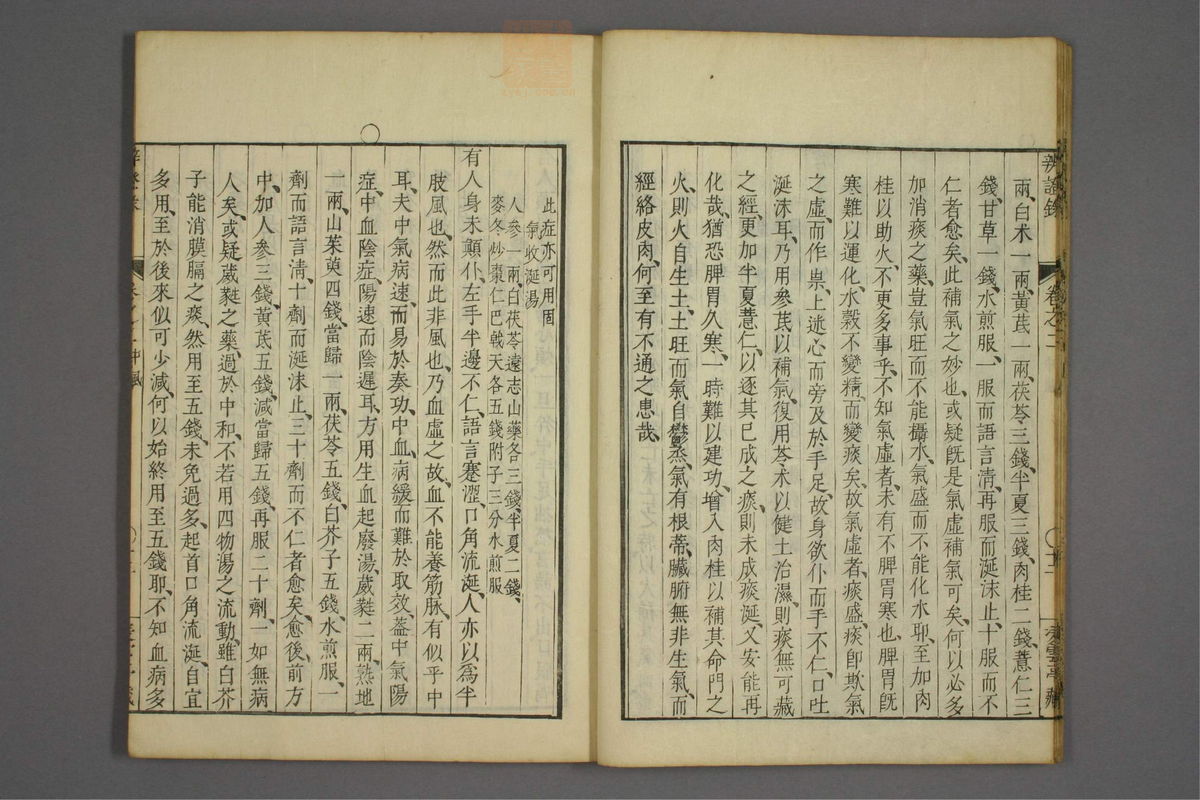 辨證錄 卷之二
兩、白术一兩、黃芪一兩、茯苓三錢、半夏三錢、肉桂二錢、薏仁三
錢、甘草一錢、水煎服、一服而語言清、再服而涎沫止、十服而不
仁者愈矣、此補氣之妙也、或疑旣是氣虛補氣可矣、何以必多
加消痰之藥、豈氣旺而不能攝水、氣盛而不能化水耶、至加肉
桂以助火、不更多事乎、不知氣虛者、未有不脾胃寒也、脾胃旣
寒難以運化、水穀不變精、而變痰矣、故氣虛者、痰盛、痰卽欺氣
之虛、而作祟、上迷心而旁及於手足、故身欲仆而手不仁、口吐
涎沫耳、乃用參芪以補氣、復用苓术以健土治濕、則痰無可藏
之經、更加半夏薏仁、以逐其已成之痰、則未成痰涎、又安能再
化哉、猶恐脾胃久寒、一時難以建功、增入肉桂以補其命門之
火、則火自生土、土旺而氣自鬱蒸、氣有根蒂、臟腑無非生氣、而
經絡皮肉、何至有不通之患哉、
此症亦可用固
氣收涎湯
人參一兩、白茯苓遠志山藥各三錢、半夏二錢、
麥冬炒棗仁巴戟天各五錢附子三分水煎服
有人身未顛仆、左手半邊不仁、語言蹇澀、口角流涎、人亦以爲半
肢風也、然而此非風也、乃血虛之故、血不能養筋脉、有似乎中
耳、夫中氣病速、而易於奏功、中血病緩而難於取效、葢中氣陽
症、中血陰症、陽速而陰遲耳、方用生血起廢湯、葳蕤二兩、熟地
一兩、山茱萸四錢、當歸一兩、茯苓五錢、白芥子五錢、水煎服、一
劑而語言清、十劑而涎沫止、三十劑而不仁者愈矣、愈後前方
中、加人參三錢、黃芪五錢、減當歸五錢、再服二十劑、一如無病
人矣、或疑葳蕤之藥、過於中和、不若用四物湯之流動、雖白芥
子能消膜膈之痰、然用至五錢、未免過多、起首口角流涎、自宜
多用、至於後來似可少減、何以始終用至五錢耶、不知血病多